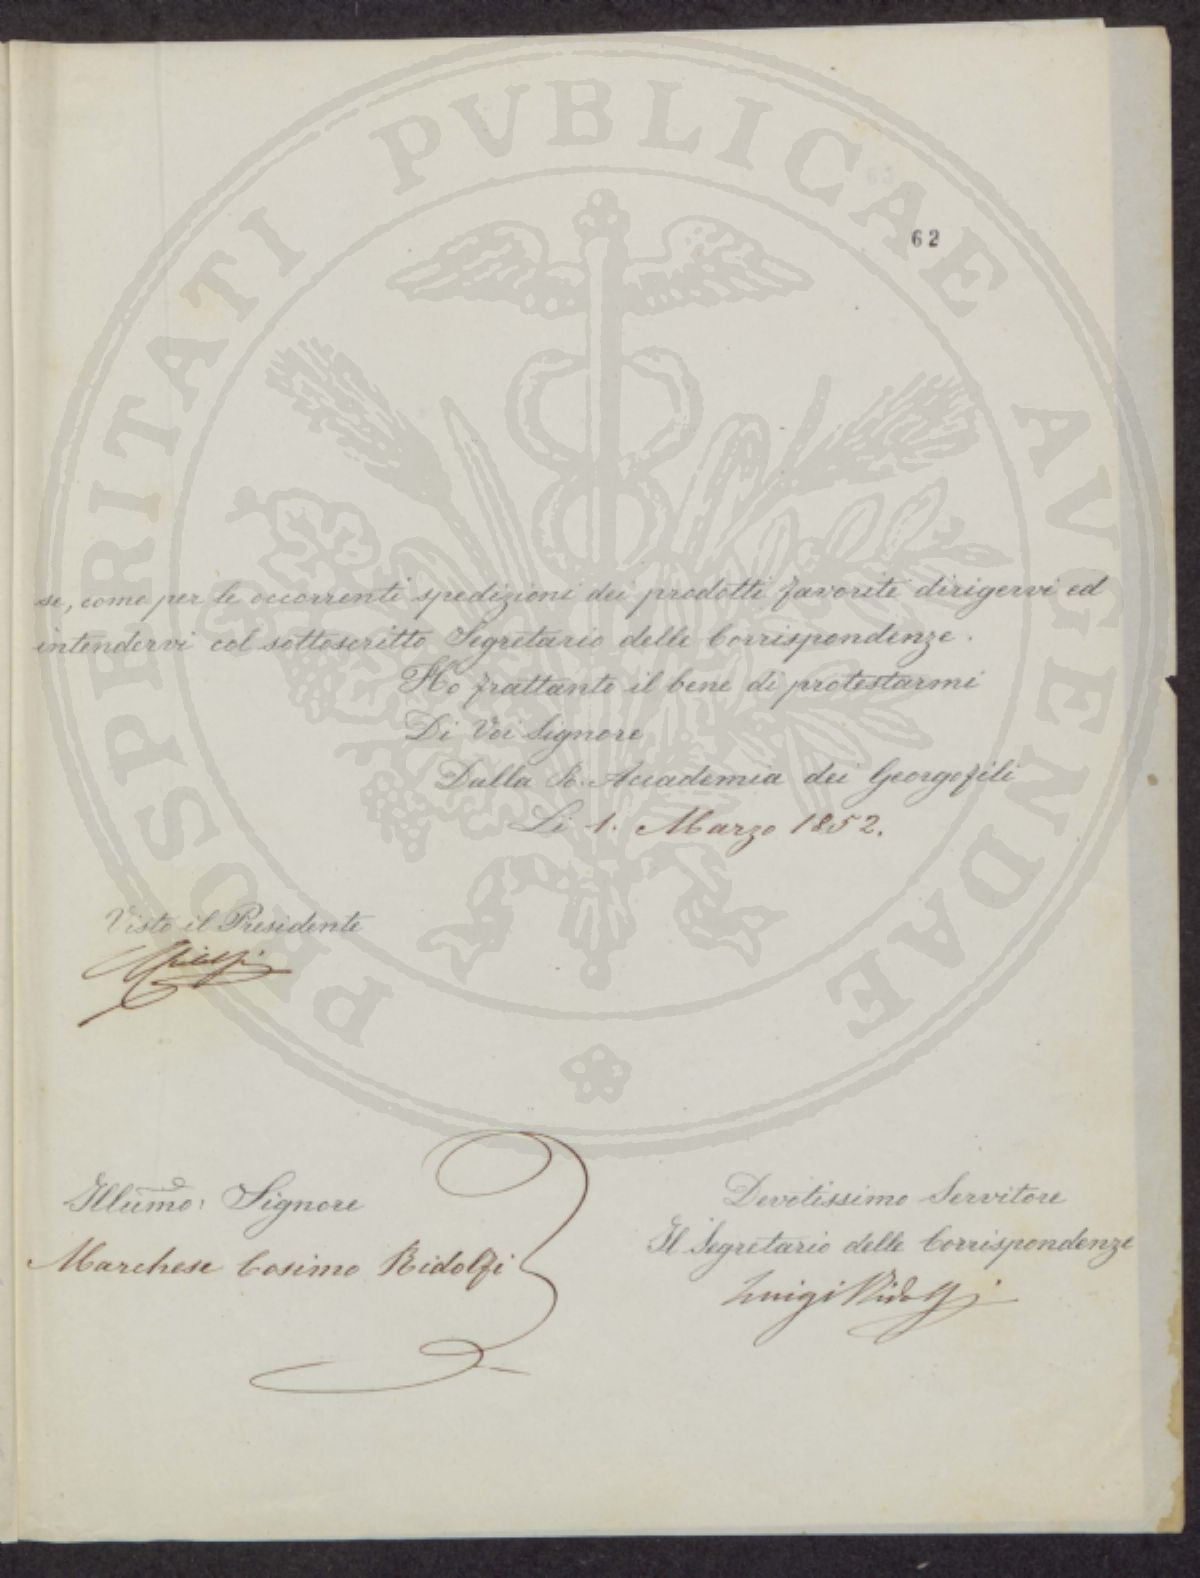 PROSPERITATI PVBLICAE AVGENDAE
62
se, come per le occorrenti spedizioni dei prodotti favorite dirigervi ed
intendervi col sottoscritto Segretario delle Corrispondenze.
Ho frattanto il bene di protestarmi
Di Voi Signore
Dalla R. Accademia dei Georgofili
Li 1. Marzo 1852.
Visto il Presidente
Illumo: Signore
Marchese Cosimo Ridolfi
Devotissimo Servitore
Il Segretario delle Corrispondenze
Luigi Ridolfi